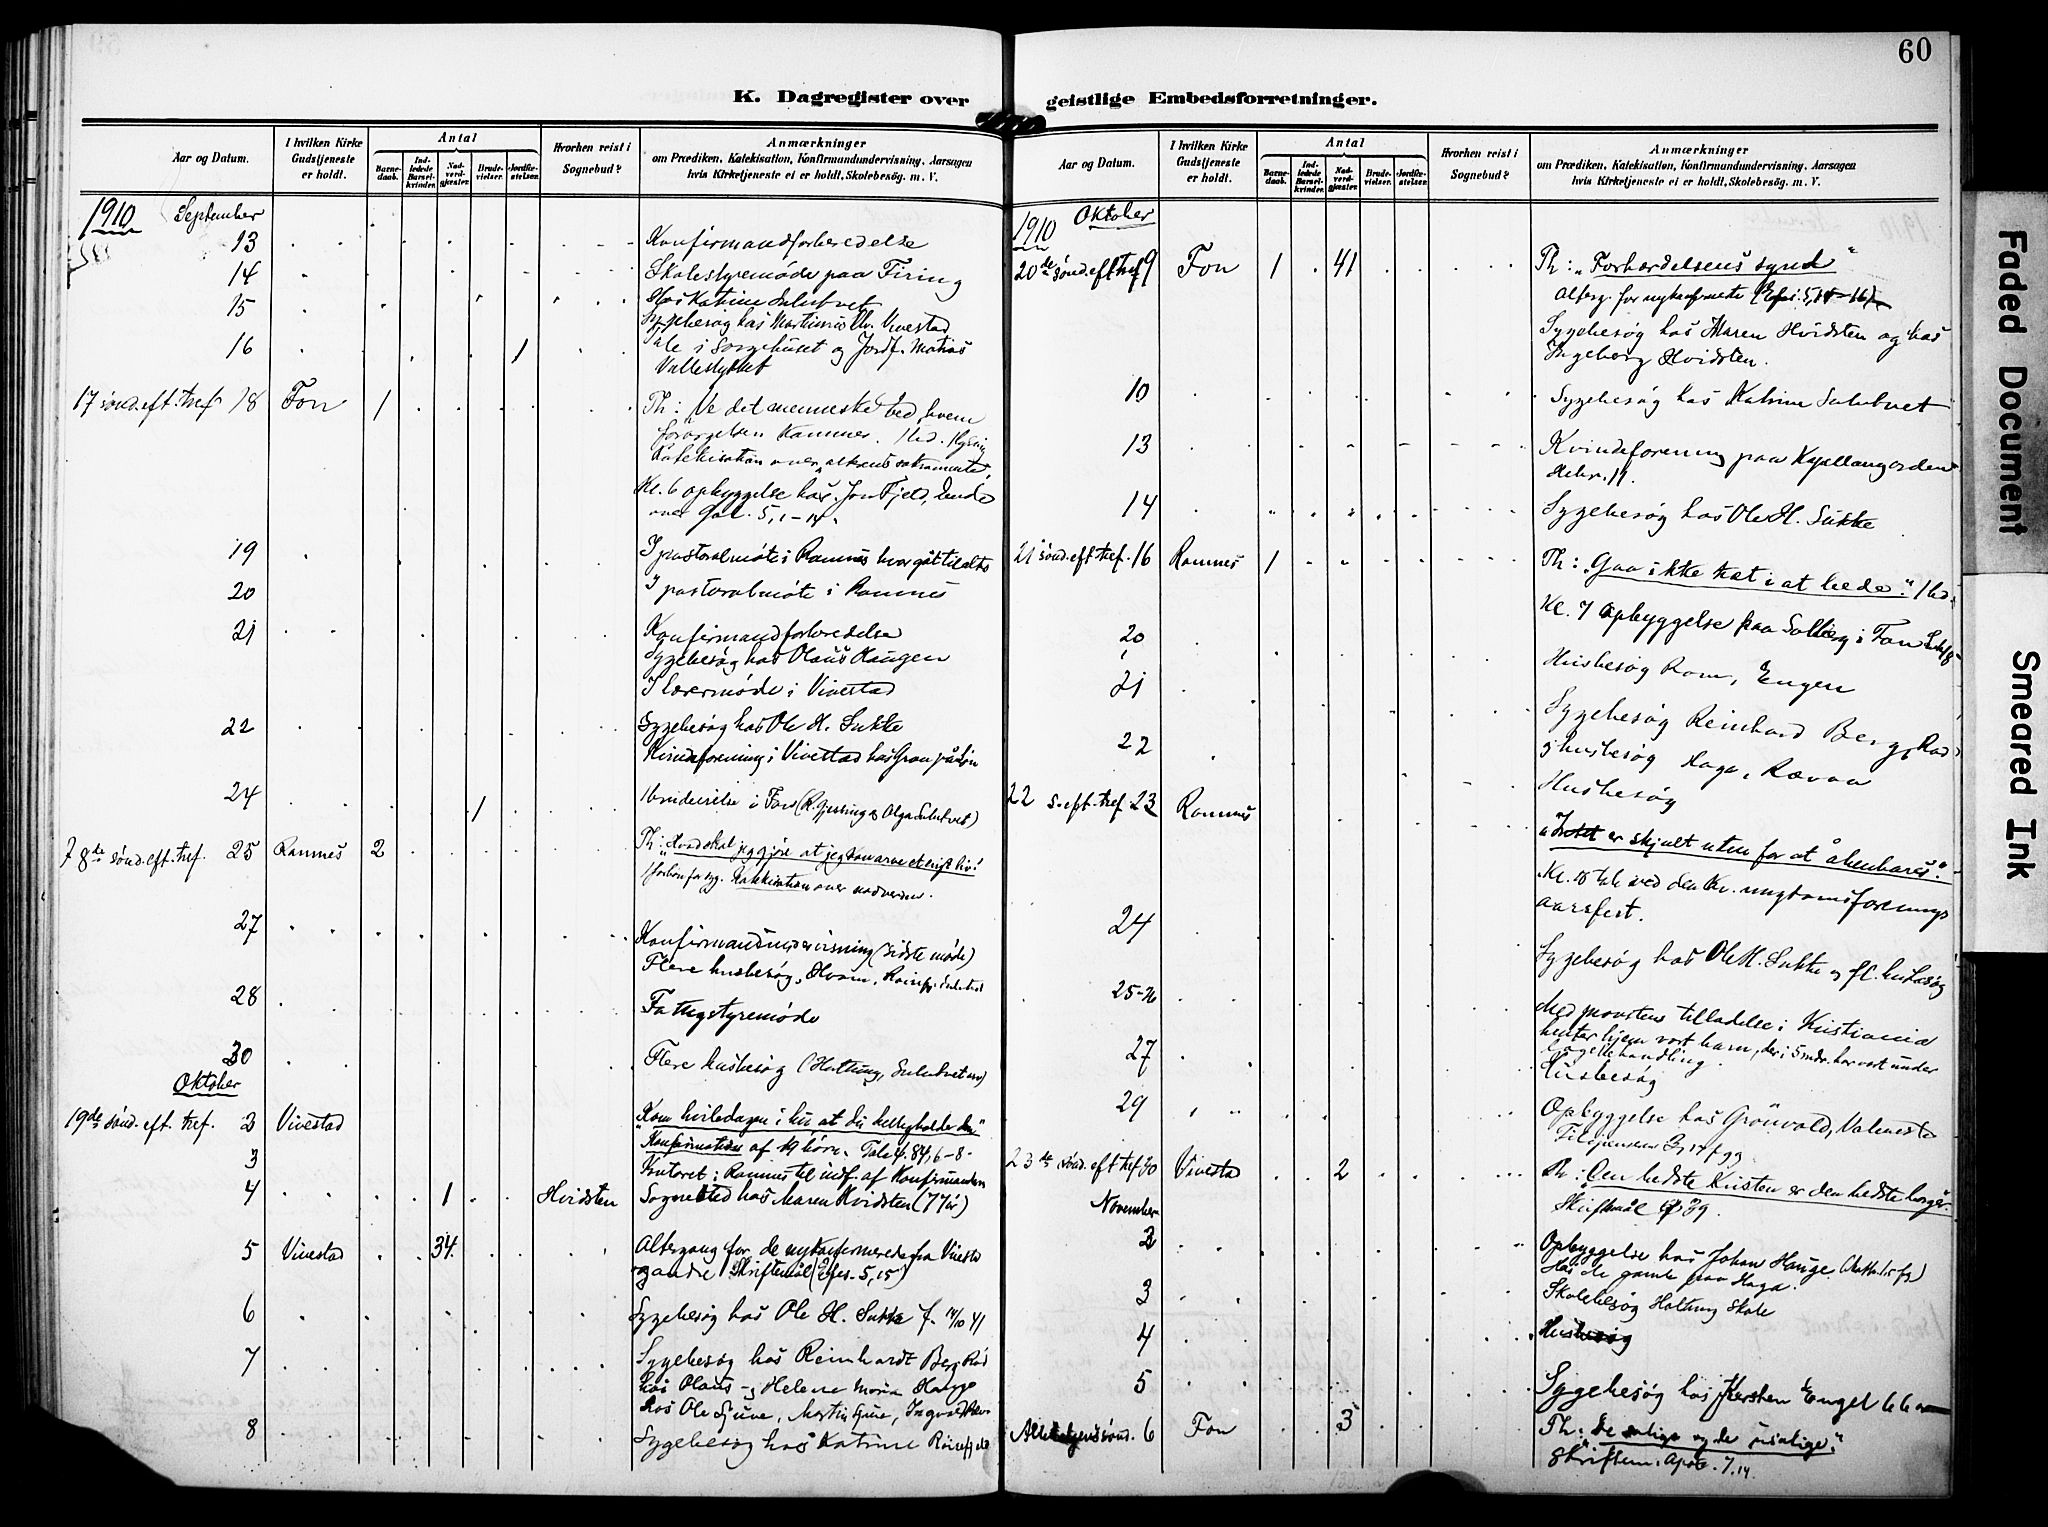 60
K. Dagregister over
Aar og Datum.
I hvilken Kirke Gudstjeneste er holdt.
Antal
Barnedaab.
Indledede Barselkvinder.
Nadverdgjæster.
Brudevielser.
Jordfæstelser.
Hvorhen reist i Sognebud?
Anmærkninger
om Prædiken, Katekisation, Konfirmandundervisning, Aarsagen
hvis Kirketjeneste ei er holdt, Skolebesøg. m. V.
1910 September
13 Konfirmandforberedelse
14 Skolestyremøde paa Firing
15 Hos Katrine
Sygebesøg hos Martinus Chr. Vivestad
16 1 Tale i Sørgehuset og Jordf. Matias
17 sønd. eft. tref. 18 Fon 1 Th: "Ve det menneske ved hvem
forargelsen kommer.
Katekisation over alterets sakramente
Kl. 6 opbyggelse hos
over Gal. 5, 1-14.
19 I pastoralmøte i Ramnes
20 I pastoralmøte i Ramnes
21 Konfirmandforberedelse
Sygebesøg hos Olaus Haugen
I lærermøde i Vivestad
22 Sygebesøg hos Ole H. Sukke
Kvindeforening i Vivestad hos
24 1 1 brudevielse i Fon
18de sønd. eft. tref. 25 Ramnes 2 Th: "Hvad skal jeg gjøre at jeg kan arve et evigt liv!
Katekisation over nadveren.
27 Konfirmandundervisning (sidste møde)
Flere husbesøg,
28 Fattigstyremøde
30 Flere husbesøg
Oktober
19de sønd. eft. tref. 2 Vivestad "Kom hviledagen i hu at du helligholde den"
Konfirmation af 19 børn. Tale 84, 6-8.
3 Kontoret i Ramnes til indf. af Konfirmanden
4 1 Hvidsten Sognebud hos Maren Hvidsten (77 år)
5 Vivestad 34. Altergang for de nykonfirmerede fra Vivestad
og andre Skriftemål (Efes. 5, 15)
6 Sygebesøg hos Ole H. Sukke f. 14/10 41
7 Sygebesøg hos Reinhardt Berg, Rød
hos Olaus og Helene Maria Hauge
hos Ole Gjuve, Martin Gjuve,
8 Sygebesøg hos Katrine
geistlige Embedsforretninger.
Aar og Datum.
I hvilken Kirke Gudstjeneste er holdt.
Antal
Barnedaab.
Indledede Barselkvinder.
Nadverdgjæster.
Brudevielser.
Jordfæstelser.
Hvorhen reist i Sognebud?
Anmærkninger
om Prædiken, Katekisation, Konfirmandundervisning, Aarsagen
hvis Kirketjeneste ei er holdt, Skolebesøg. m. V.
1910 Oktober
20de sønd. eft. tref 9 Fon 1 41 Th: "Forhærdelsens synd"
Alterg. for nykonfirmerte (Efes. 5, 15-16)
Sygebesøg hos Maren Hvidsten og hos
Ingeborg Hvidsten.
10 Sygebesøg hos Katrine
13 Kvindeforening paa Kapellangaarden
Hebr. 11.
14 Sygebesøg hos Ole H. Sukke
21 sønd. eft. tref. 16 Ramnes 1 Th: "Gaa ikke træt i at bede."
Kl. 7 Opbyggelse paa Solberg i Fon
20 Husbesøg Rom, Engen
21 Sygebesøg Reinhard Berg, Rød
husbesøg Haga, Rævaa
22 Husbesøg
22 s. eft. tref. 23 Ramnes "Intet er skjult uten for at åbenbares."
Kl. tale ved den kr. ungdomsforenings
aarsfest.
24 Sygebesøg hos Ole H. Sukke og fl. husbesøg
25-26 Med provstens tilladelse i Kristiania
henter hjem vort barn, der i 5 mdr. har vært under
lægebehandling.
27 Husbesøg
29 Opbyggelse hos Grönvold,
23de sønd. eft tref 30 Vivestad 2 Th: "Den bedste Kristen er den bedste borger.
Skriftemål 39.
November
2 Opbyggelse hos Johan Hauge
Hos de gamle paa Haga.
3 Skolebesøg Holtung Skole
4 Husbesøg
5 Sygebesøg hos Kirsten Engel
Allehelgenssønd. 6 Fon 3 Th: "De salige og de usalige."
Skriftem. Apok. 7, 14.
Faded Document
Smeared Ink